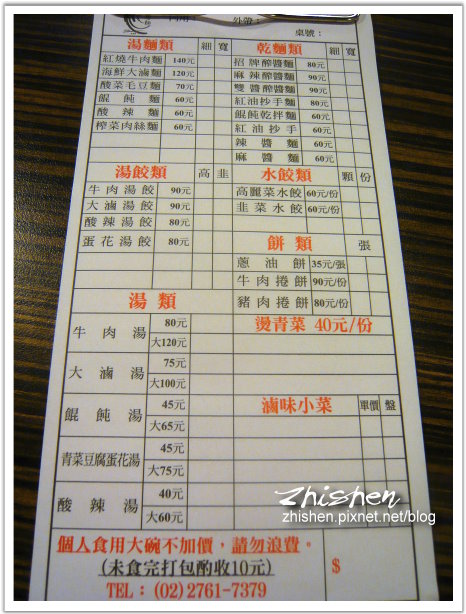 內用： 外帶： 桌號：
湯麵類 細 寬
紅燒牛肉麵 140元
海鮮大滷麵 120元
酸菜毛豆麵 70元
餛飩麵 60元
酸辣麵 60元
榨菜肉絲麵 60元
乾麵類 細 寬
招牌醡醬麵 80元
麻辣醡醬麵 90元
雙醬醡醬麵 90元
紅油抄手麵 80元
餛飩乾拌麵 60元
紅油抄手 60元
辣醬麵 60元
麻醬麵 60元
湯餃類 高 韭
牛肉湯餃 90元
大滷湯餃 90元
酸辣湯餃 80元
蛋花湯餃 80元
水餃類 顆 份
高麗菜水餃 60元/份
韭菜水餃 60元/份
餅類 張
蔥油餅 35元/張
牛肉捲餅 90元/份
豬肉捲餅 80元/份
湯類
牛肉湯 80元
大120元
大滷湯 75元
大100元
餛飩湯 45元
大65元
青菜豆腐蛋花湯 45元
大75元
酸辣湯 40元
大60元
燙青菜 40元/份
滷味小菜 單價 盤
個人食用大碗不加價，請勿浪費。
(未食完打包酌收10元)
TEL：(02) 2761-7379
$
Zhishen
zhishen.pixnet.net/blog